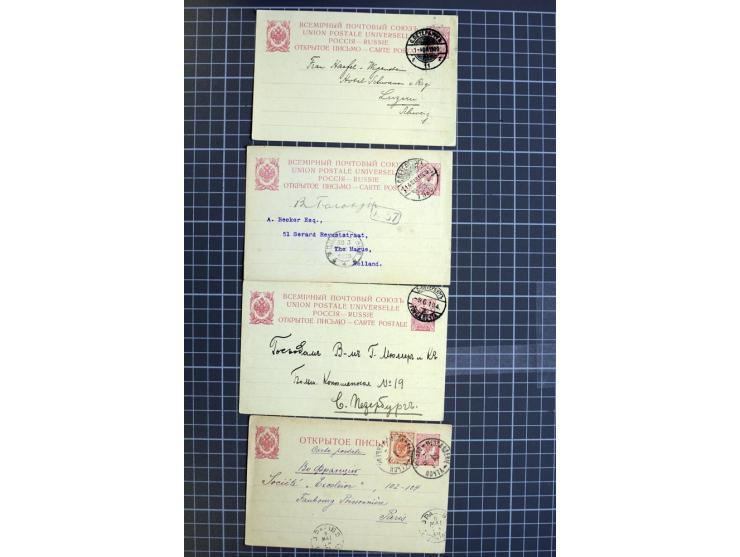 ВСЕМІРНЫЙ ПОЧТОВЫЙ СОЮЗЪ
UNION POSTALE UNIVERSELLE
РОССІЯ — RUSSIE
ОТКРЫТОЕ ПИСЬМО — CARTE POSTALE
Frau
Hotel Schwanen & Rigi
Luzern
Schweiz
ВСЕМІРНЫЙ ПОЧТОВЫЙ СОЮЗЪ
UNION POSTALE UNIVERSELLE
РОССІЯ — RUSSIE
ОТКРЫТОЕ ПИСЬМО — CARTE POSTALE
A. Becker Esq.,
51 Gerard Reynststraat,
The Hague,
Holland.
ВСЕМІРНЫЙ ПОЧТОВЫЙ СОЮЗЪ
UNION POSTALE UNIVERSELLE
РОССІЯ — RUSSIE
ОТКРЫТОЕ ПИСЬМО — CARTE POSTALE
Господамъ В-мъ Г. Мюллеръ и Кº
№ 19
С. Петербургъ.
ОТКРЫТОЕ ПИСЬ
Carte postale
Во Францію
Société „Excelsior", 102-104
Faubourg Poissonnière
Paris